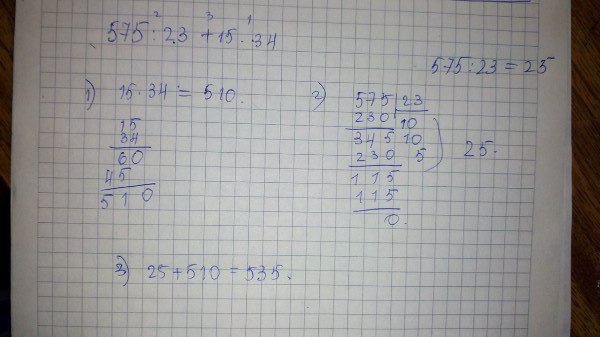 2 3 1
575 : 23 + 15 · 34
575 : 23 = 25
1) 15 · 34 = 510.
15
34
60
45
510
2) 575 | 23
230 | 10
345 10
230 5
115
115
0.
25.
3) 25 + 510 = 535.